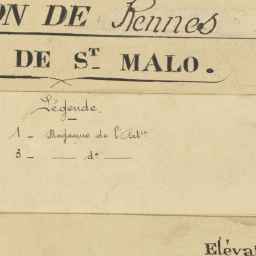 ON DE Rennes
DE Sᵀ MALO.
Légende.
1 _ Magasin de l'Artⁱᵉ
3 _ __ dº __
Éléva